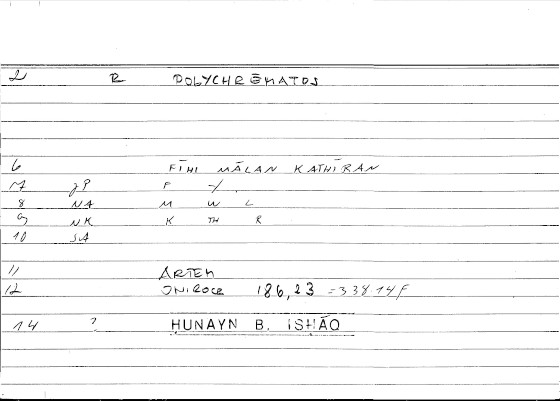 2 R POLYCHRĒMATOS
6 FĪHI MĀLAN KATHĪRAN
17 P F -/.
8 NA M W L
9 NK K TH R
10 SA
11 ARTEM
12 ONIROCR 186,23 = 338 14 F
14 ? ḤUNAYN B. ISḤĀQ